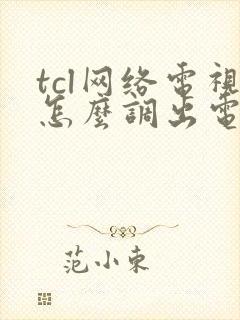 tcl网络電視
怎麼調出電
范小東